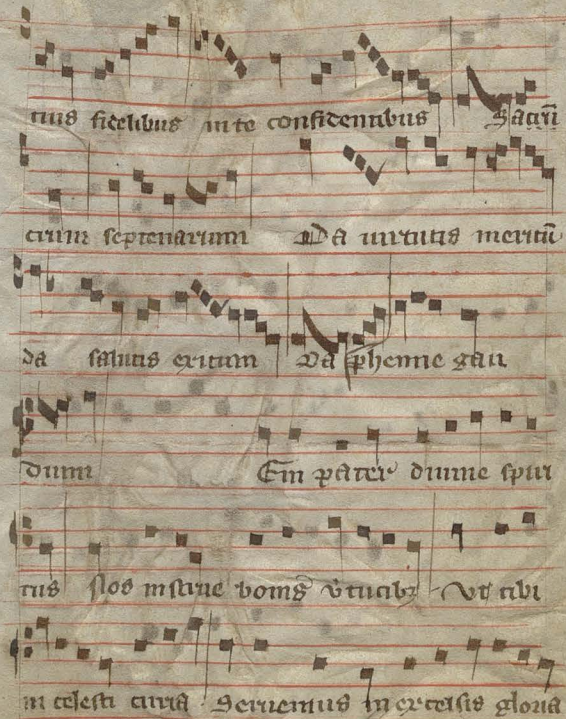 tuis fidelibus in te confidentibus Sacrũ
crum septenarium Da uirtutis meritũ
da salutis exitum Da phenne gau
dium Em pater diuine spiri
tus Nos instrue bonis
in celesti curia Seruientius in excelsis gloria